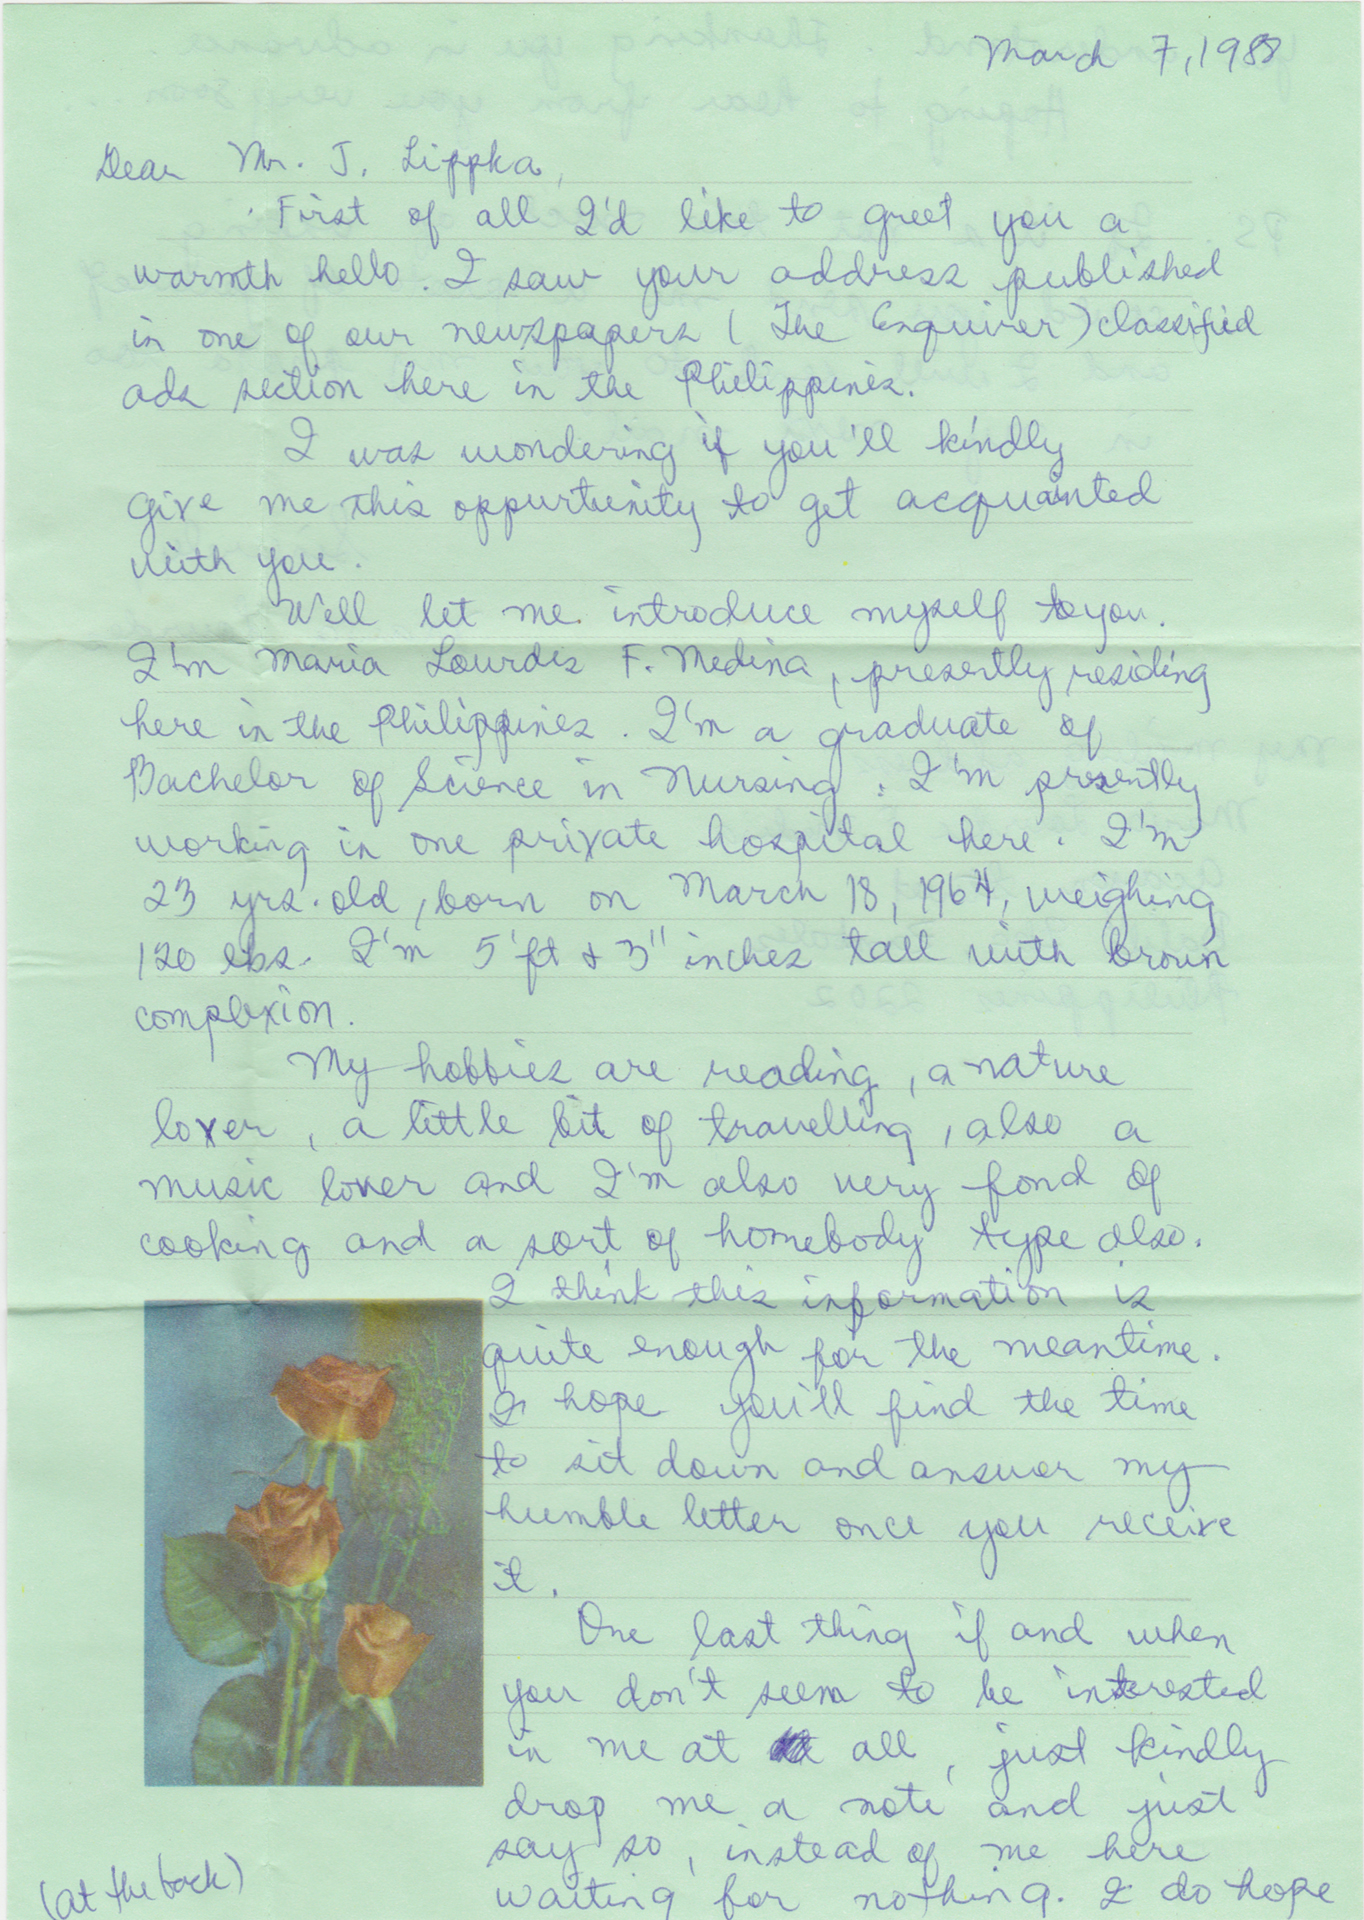 March 7, 1988
Dear Mr. J. Lippka,
First of all I'd like to greet you a
warmth hello. I saw your address published
in one of our newspapers ( The Enquirer) classified
ads section here in the Philippines.
I was wondering if you'll kindly
give me this oppurtunity to get acquainted
with you.
Well let me introduce myself to you.
I'm Maria Lourdes F. Medina, presently residing
here in the Philippines. I'm a graduate of
Bachelor of Science in Nursing. I'm presently
working in one private hospital here. I'm
23 yrs. old, born on March 18, 1964, weighing
120 lbs. I'm 5' ft & 3" inches tall with brown
complexion.
My hobbies are reading, a nature
lover, a little bit of travelling, also a
music lover and I'm also very fond of
cooking and a sort of homebody type also.
I think this information is
quite enough for the meantime.
I hope you'll find the time
to sit down and answer my
humble letter once you receive
it.
One last thing if and when
you don't seem to be interested
in me at all, just kindly
drop me a note and just
say so, instead of me here
waiting for nothing. I do hope
(at the back)